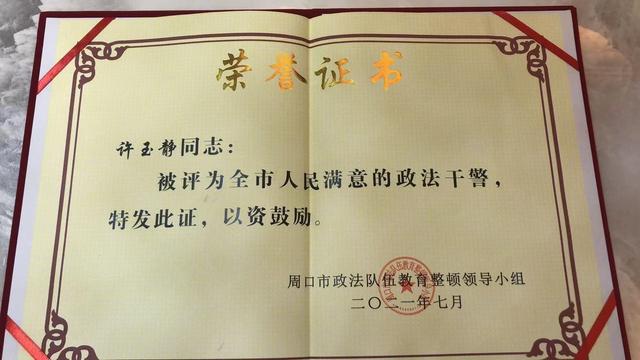 荣誉证书
许玉静同志：
被评为全市人民满意的政法干警，
特发此证，以资鼓励。
周口市政法队伍教育整顿领导小组
二〇二一年七月